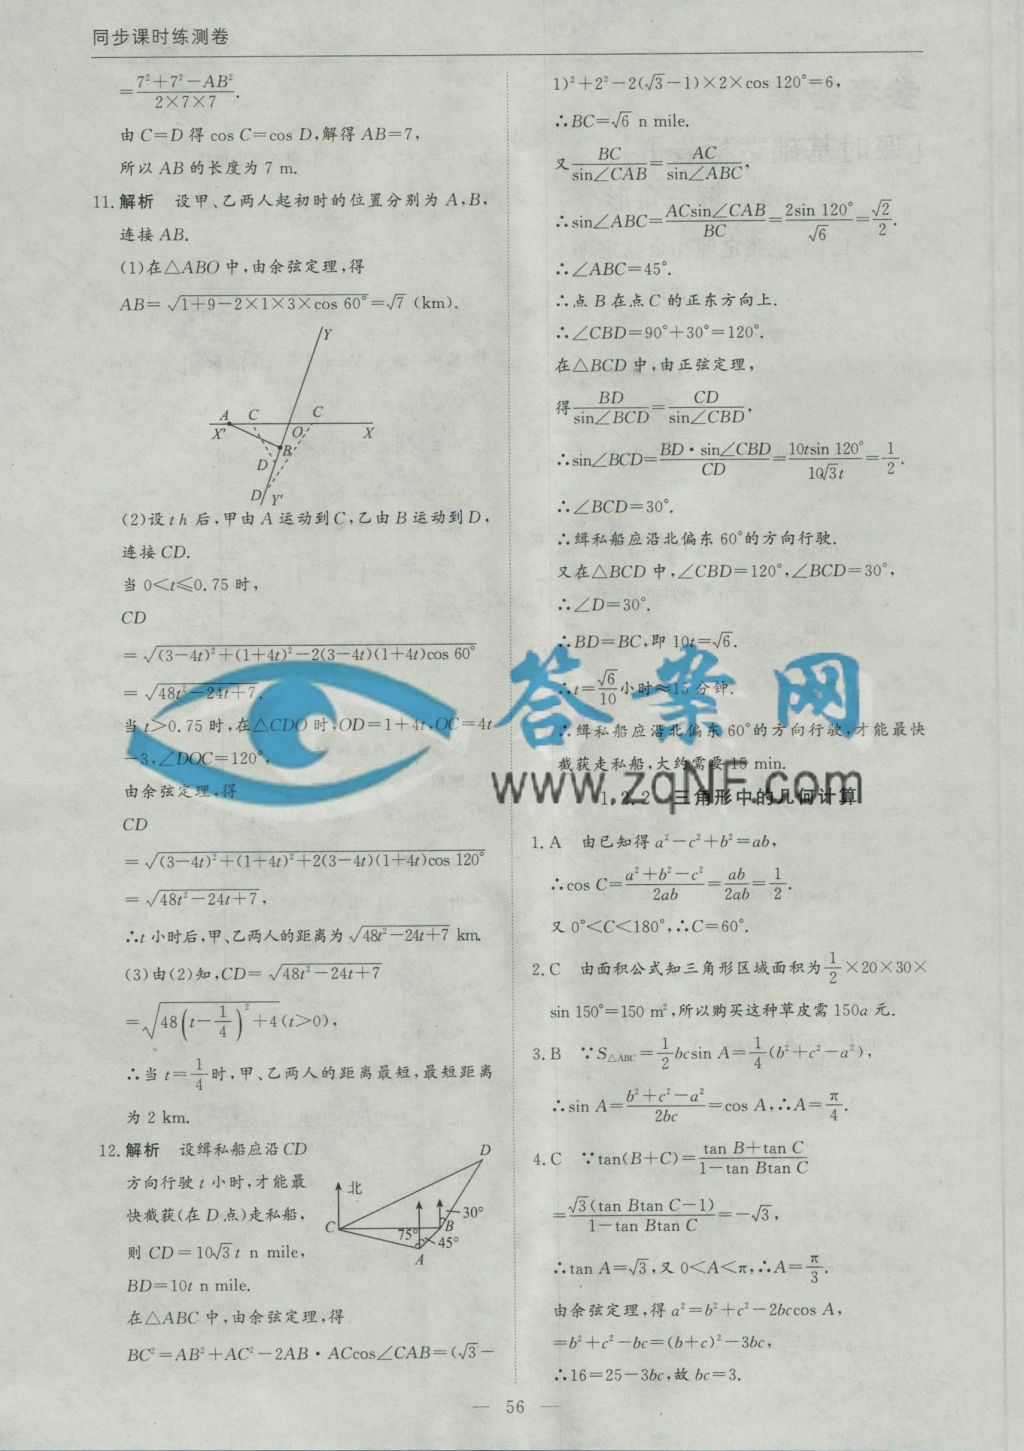 同步课时练测卷
=\frac{7²+7²-AB²}{2×7×7}.
由 C=D 得 cos C=cos D,解得 AB=7,
所以 AB 的长度为 7 m.
11. 解析 设甲、乙两人起初时的位置分别为 A,B,
连接 AB.
(1)在△ABO 中,由余弦定理,得
AB=√(1+9-2×1×3×cos 60°)=√7 (km).
Y
A C C
X' O X
B
D
D Y'
(2)设 t h 后,甲由 A 运动到 C,乙由 B 运动到 D,
连接 CD.
当 0<t≤0.75 时,
CD
=√((3-4t)²+(1+4t)²-2(3-4t)(1+4t)cos 60°)
=√(48t²-24t+7).
当 t>0.75 时,在△CDO 时,OD=1+4t,OC=4t
-3,∠DOC=120°,
由余弦定理,得
CD
=√((3-4t)²+(1+4t)²+2(3-4t)(1+4t)cos 120°)
=√(48t²-24t+7),
∴t 小时后,甲、乙两人的距离为 √(48t²-24t+7) km.
(3)由(2)知,CD=√(48t²-24t+7)
=√(48(t-\frac{1}{4})²+4)(t>0),
∴当 t=\frac{1}{4}时,甲、乙两人的距离最短,最短距离
为 2 km.
12. 解析 设缉私船应沿 CD
方向行驶 t 小时,才能最
快截获(在 D 点)走私船,
则 CD=10√3 t n mile,
BD=10t n mile.
D
北
30°
C 75° B
45°
A
在△ABC 中,由余弦定理,得
BC²=AB²+AC²-2AB·ACcos∠CAB=(√3-
1)²+2²-2(√3-1)×2×cos 120°=6,
∴BC=√6 n mile.
又\frac{BC}{sin∠CAB}=\frac{AC}{sin∠ABC},
∴sin∠ABC=\frac{ACsin∠CAB}{BC}=\frac{2sin 120°}{√6}=\frac{√2}{2}.
∴∠ABC=45°.
∴点 B 在点 C 的正东方向上.
∴∠CBD=90°+30°=120°.
在△BCD 中,由正弦定理,
得\frac{BD}{sin∠BCD}=\frac{CD}{sin∠CBD},
∴sin∠BCD=\frac{BD·sin∠CBD}{CD}=\frac{10tsin 120°}{10√3t}=\frac{1}{2}.
∴∠BCD=30°.
∴缉私船应沿北偏东 60°的方向行驶.
又在△BCD 中,∠CBD=120°,∠BCD=30°,
∴∠D=30°.
∴BD=BC,即 10t=√6.
∴t=\frac{√6}{10}小时≈15 分钟.
∴缉私船应沿北偏东 60°的方向行驶,才能最快
截获走私船,大约需要 15 min.
答案网
www.zqNF.com
1.2.2 三角形中的几何计算
1. A 由已知得 a²-c²+b²=ab,
∴cos C=\frac{a²+b²-c²}{2ab}=\frac{ab}{2ab}=\frac{1}{2}.
又 0°<C<180°,∴C=60°.
2. C 由面积公式知三角形区域面积为\frac{1}{2}×20×30×
sin 150°=150 m²,所以购买这种草皮需 150a 元.
3. B ∵S△ABC=\frac{1}{2}bcsin A=\frac{1}{4}(b²+c²-a²),
∴sin A=\frac{b²+c²-a²}{2bc}=cos A,∴A=\frac{π}{4}.
4. C ∵tan(B+C)=\frac{tan B+tan C}{1-tan Btan C}
=\frac{√3(tan Btan C-1)}{1-tan Btan C}=-√3,
∴tan A=√3,又 0<A<π,∴A=\frac{π}{3}.
由余弦定理,得 a²=b²+c²-2bccos A,
=b²+c²-bc=(b+c)²-3bc,
∴16=25-3bc,故 bc=3.
— 56 —